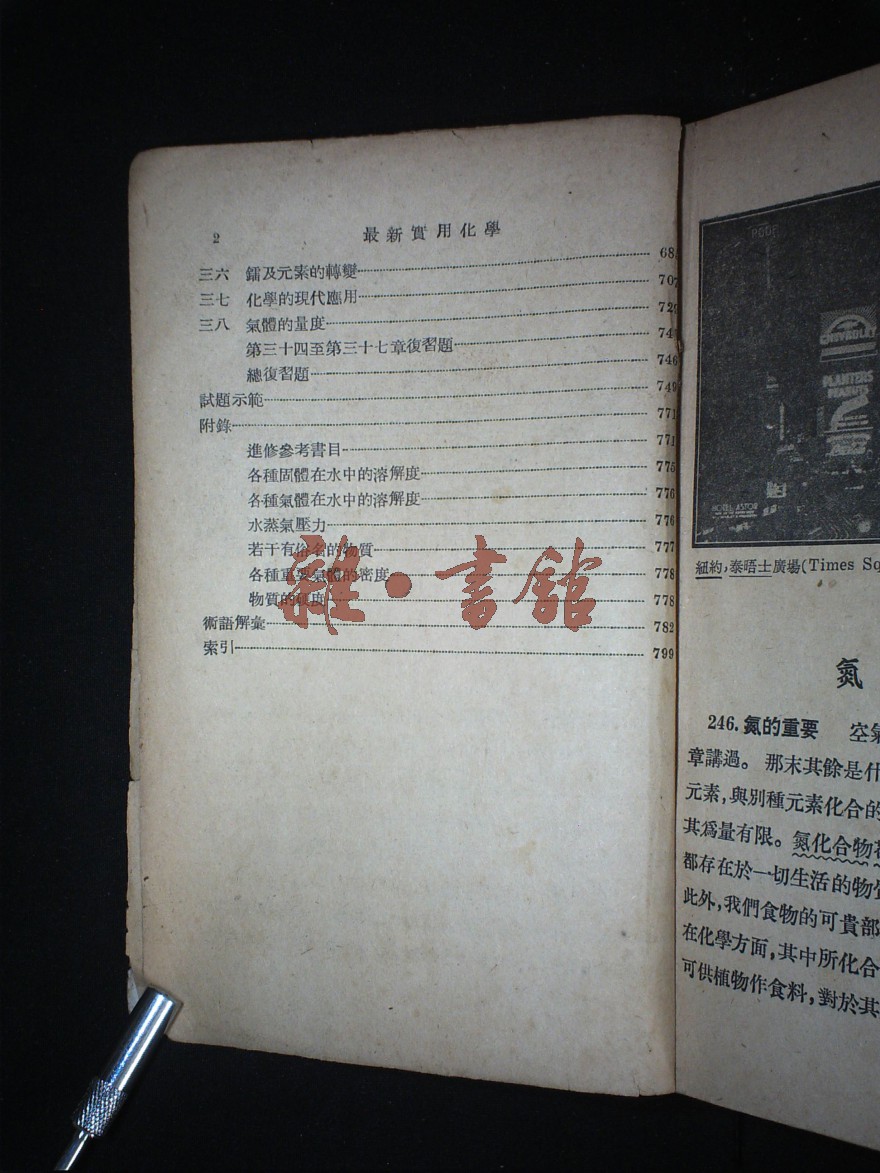 2 最新實用化學
三六 鐳及元素的轉變 68
三七 化學的現代應用 707
三八 氣體的量度 729
第三十四至第三十七章復習題 74
總復習題 746
試題示範 749
附錄 771
進修參考書目 771
各種固體在水中的溶解度 775
各種氣體在水中的溶解度 776
水蒸氣壓力 776
若干有俗名的物質 777
各種重要氣體的密度 778
物質的硬度 778
術語解彙 782
索引 799
雜·書館
CHEVROLET
PLANTERS
HOTEL ASTOR
紐約,泰晤士廣場(Times Sq
氮
246.氮的重要 空氣
章講過。那末其餘是什
元素,與別種元素化合的
其爲量有限。氮化合物
都存在於一切生活的物質
此外,我們食物的可貴部
在化學方面,其中所化合
可供植物作食料,對於其